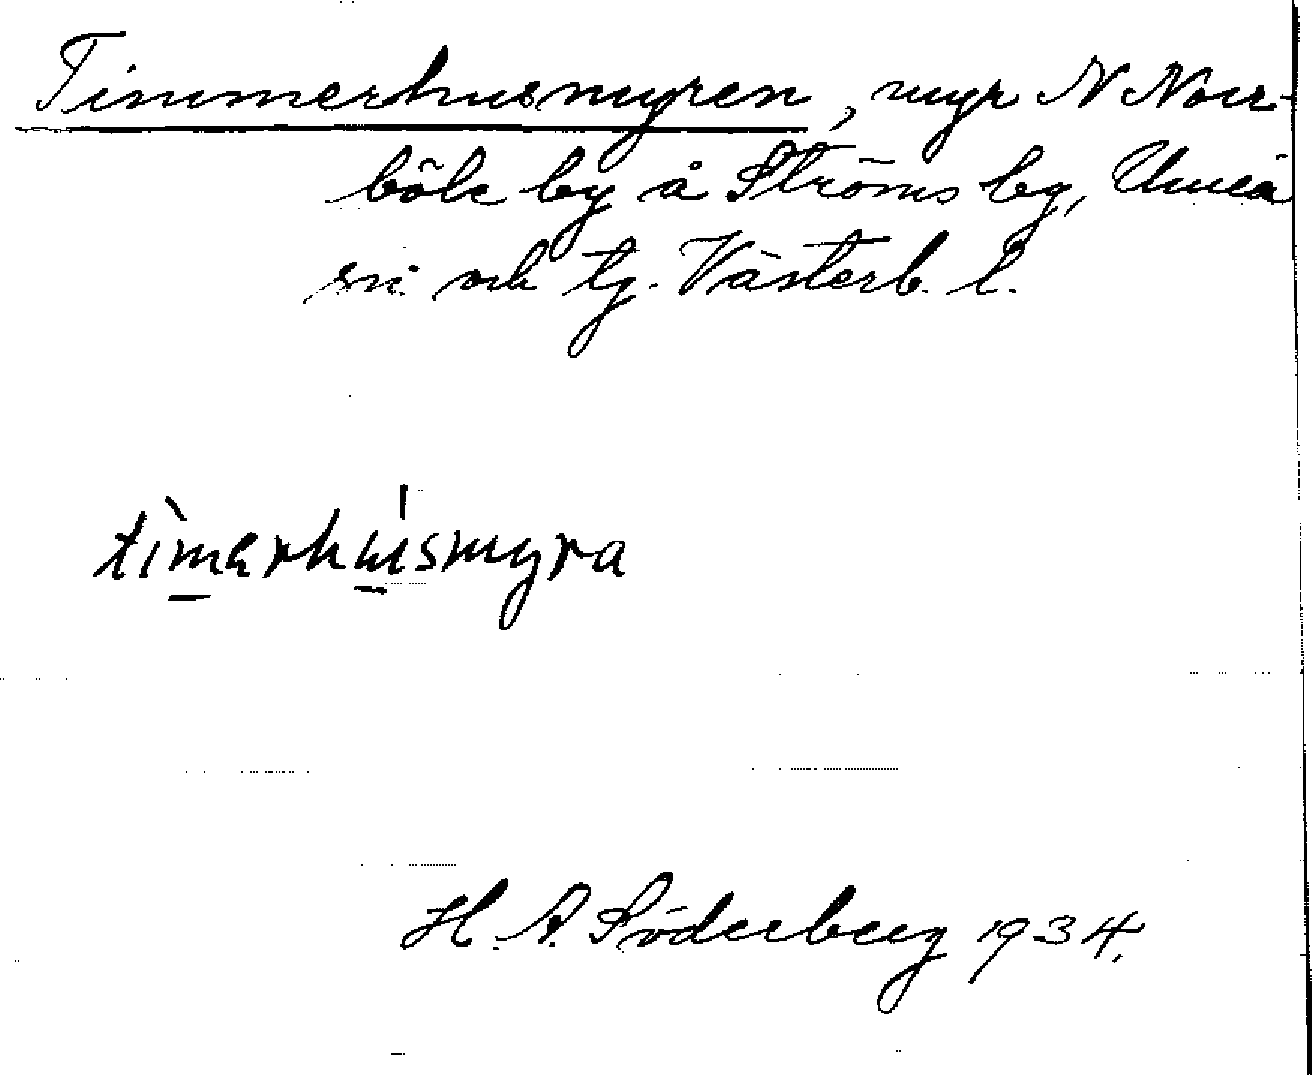 Timmerhusmyren, myr N Norr-
böle by å Ströms by, Umeå
sn och tg. Västerb. l.
tìmerhu̍smyra
H. A. Söderberg 1934.